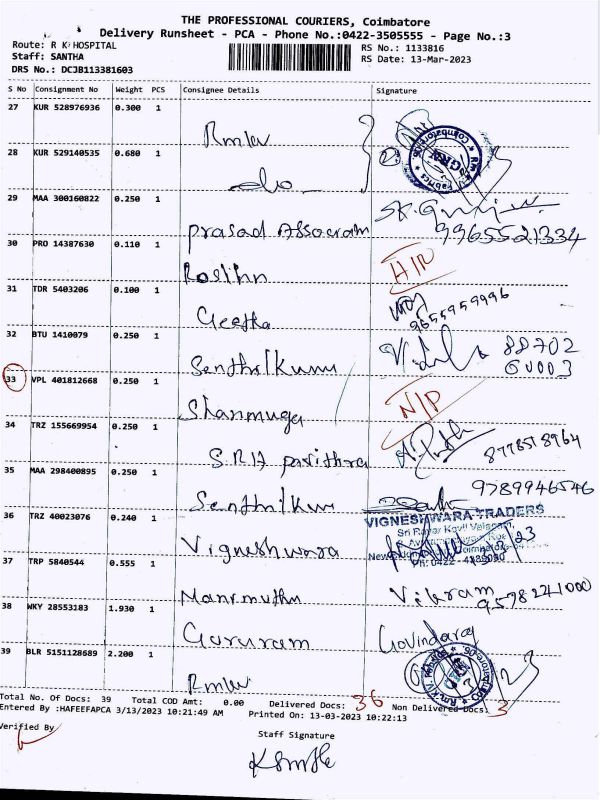 THE PROFESSIONAL COURIERS, Coimbatore
Delivery Runsheet - PCA - Phone No.:0422-3505555 - Page No.:3
Route: R K HOSPITAL
RS No.: 1133816
Staff: SANTHA
RS Date: 13-Mar-2023
DRS No.: DCJB113381603
S No Consignment No Weight PCS Consignee Details Signature
27 KUR 528976936 0.300 1 Rmkv
28 KUR 529140535 0.680 1 -do-
29 MAA 300160822 0.250 1 prasad Assocram
9965521334
30 PRO 14387630 0.110 1
31 TDR 5403206 0.100 1 Geetha 9655959996
32 BTU 1410079 0.250 1 Senthilkumar 88702
33 VPL 401812668 0.250 1 Shanmuga N/P
34 TRZ 155669954 0.250 1 SRH pavithra
35 MAA 298400895 0.250 1 Senthilkum 9789946546
36 TRZ 40023076 0.240 1 Vigneshwara VIGNESHWARA TRADERS
37 TRP 5840544 0.555 1 Manimuthu Vikram
9578221000
38 WKY 28553183 1.930 1 Gururam Govindaraj
39 BLR 5151128689 2.200 1 Rmkv
Total No. Of Docs: 39 Total COD Amt: 0.00 Delivered Docs: 36 Non Delivered Docs: 3
Entered By :HAFEEFAPCA 3/13/2023 10:21:49 AM Printed On: 13-03-2023 10:22:13
Verified By
Staff Signature